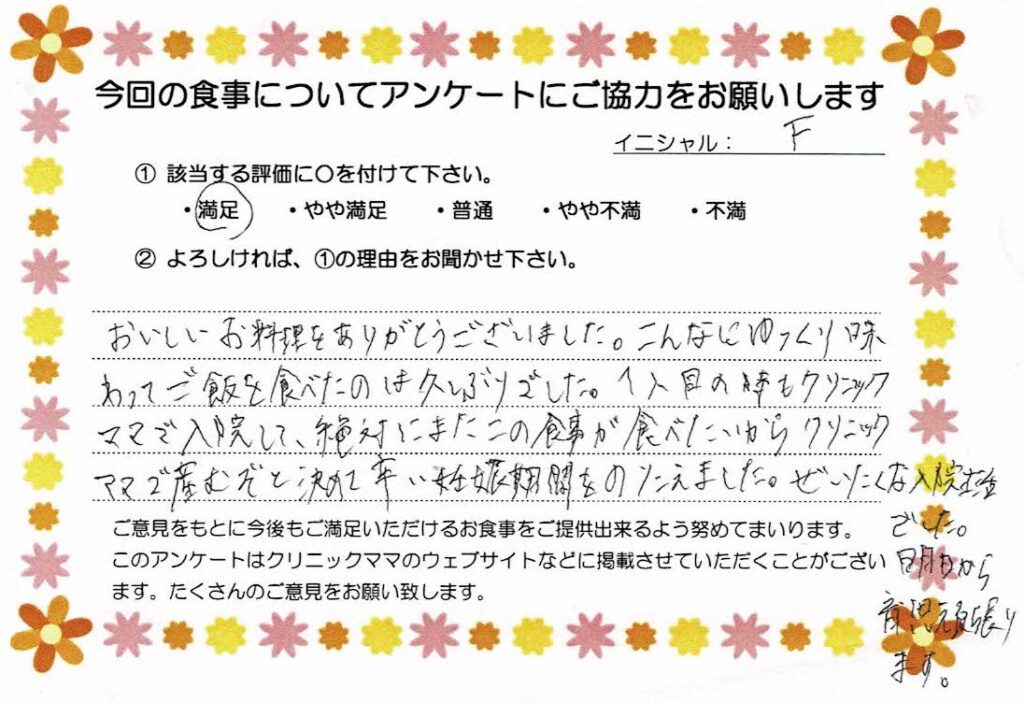 今回の食事についてアンケートにご協力をお願いします
イニシャル： F
① 該当する評価に〇を付けて下さい。
・満足 ・やや満足 ・普通 ・やや不満 ・不満
② よろしければ、①の理由をお聞かせ下さい。
おいしいお料理をありがとうございました。こんなにゆっくり味
わってご飯を食べたのは久しぶりでした。1人目の時もクリニック
ママで入院して、絶対にまたこの食事が食べたいからクリニック
ママで産むぞと決めて辛い妊娠期間をのりこえました。ぜいたくな入院生活
でした。
明日から
育児頑張り
ます。
ご意見をもとに今後もご満足いただけるお食事をご提供出来るよう努めてまいります。
このアンケートはクリニックママのウェブサイトなどに掲載させていただくことがござい
ます。たくさんのご意見をお願い致します。